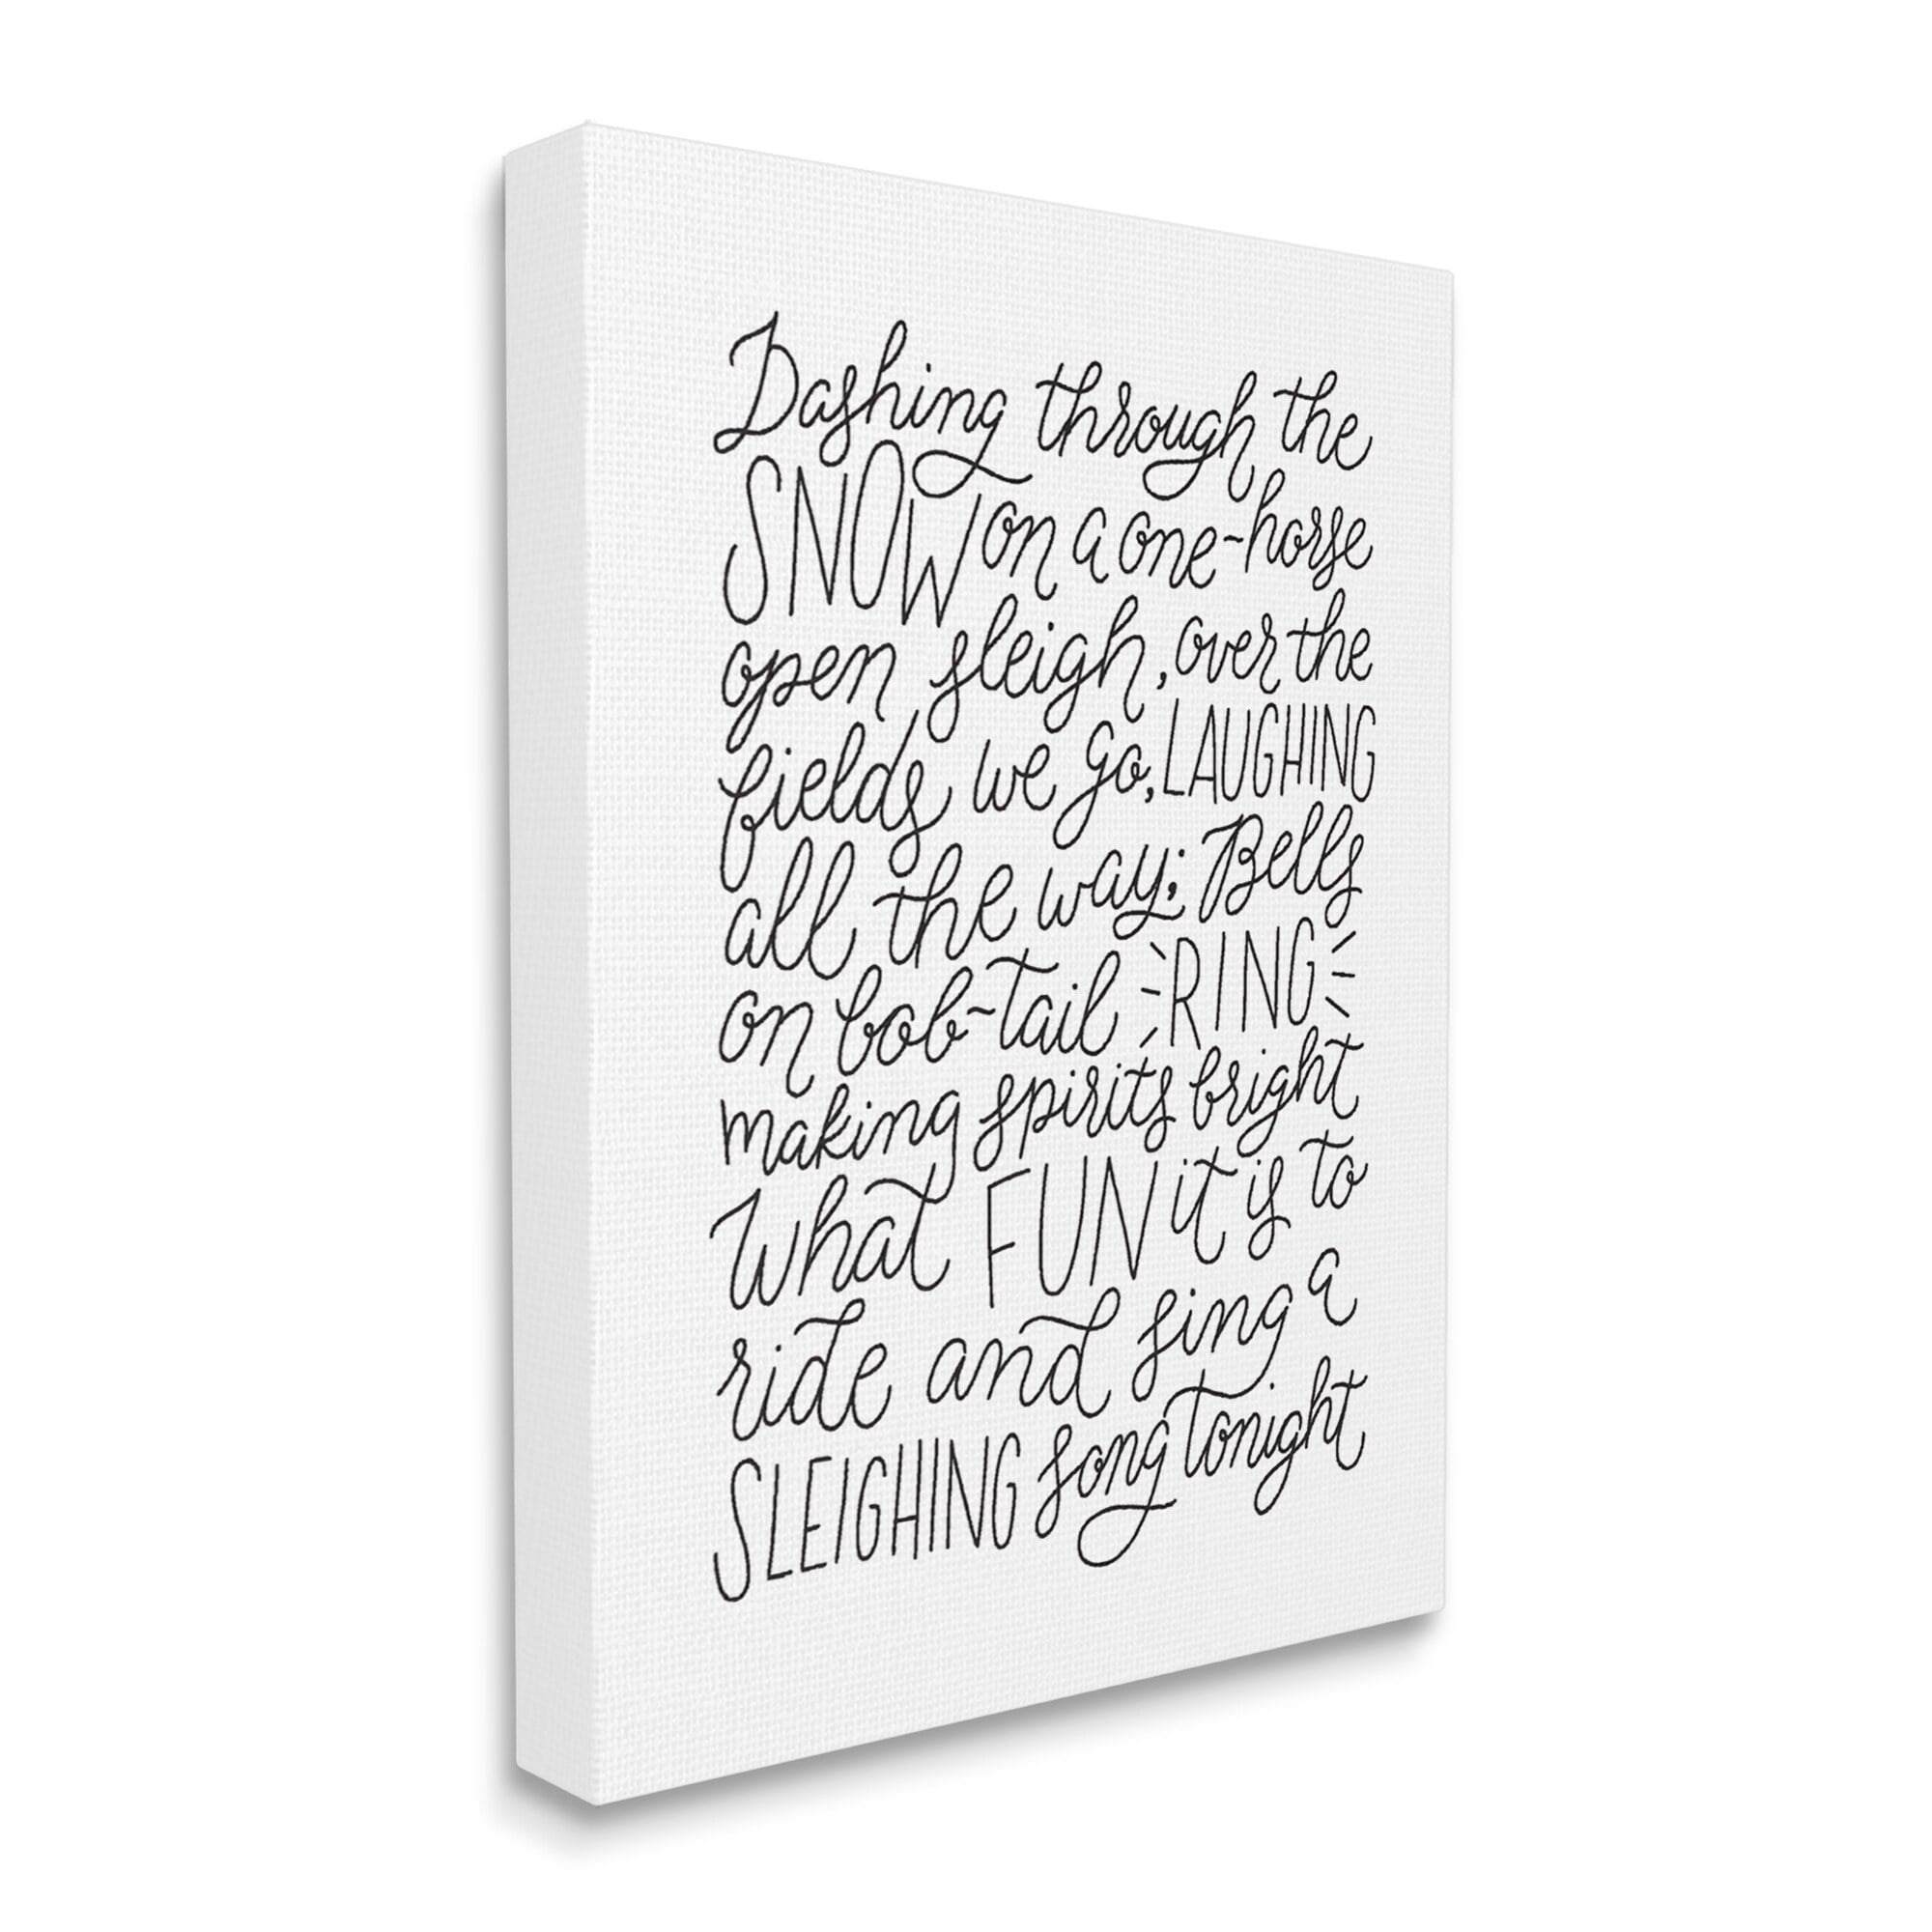 Dashing through the
SNOW on a one-horse
open sleigh, over the
fields we go, LAUGHING
all the way; Bells
on bob-tail RING
making spirits bright
What FUN it is to
ride and sing a
SLEIGHING song tonight